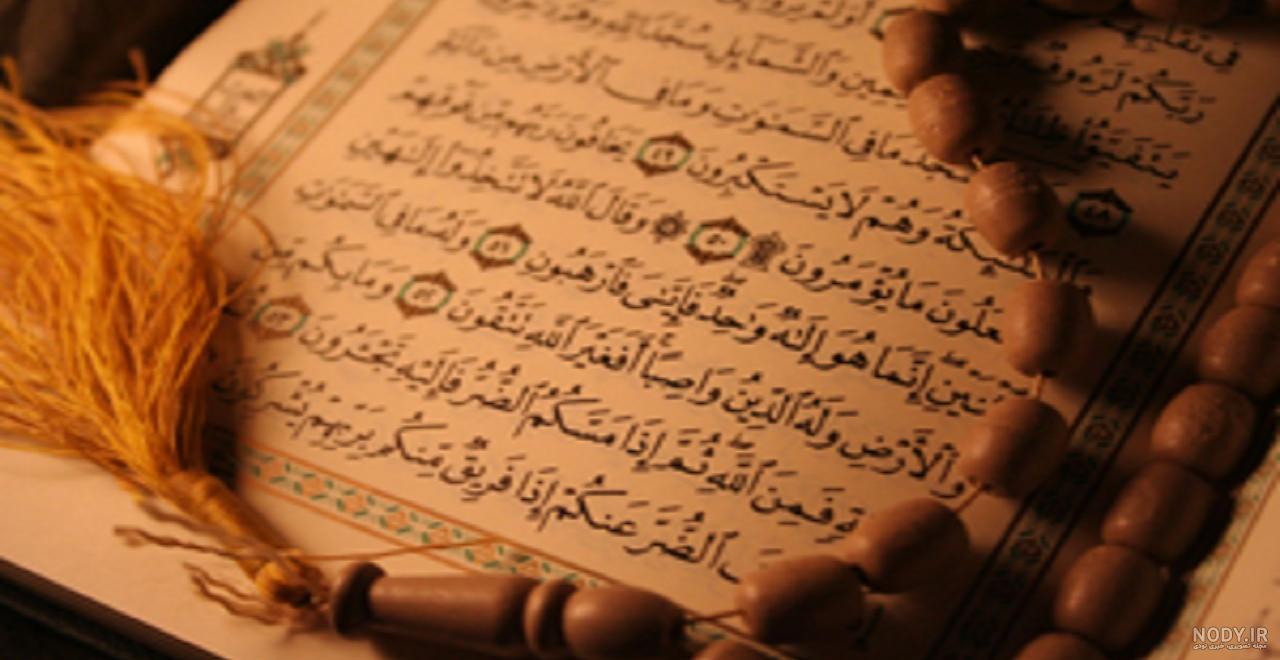 فِى تَقَلُّبِهِمْ
رَبَّكُمْ
يَتَفَيَّؤُا۟ ظِلَٰلُهُ وَٱلشَّمَآئِلِ سُجَّدًا
٤٨ يَسْجُدُ مَا فِى ٱلسَّمَٰوَٰتِ وَمَا فِى ٱلْأَرْضِ مِن دَآبَّةٍ
وَهُمْ لَا يَسْتَكْبِرُونَ ٤٩ يَخَافُونَ رَبَّهُم مِّن فَوْقِهِمْ
مَا يُؤْمَرُونَ ۩ ٥٠ ۞ وَقَالَ ٱللَّهُ لَا تَتَّخِذُوٓا۟ إِلَٰهَيْنِ
إِنَّمَا هُوَ إِلَٰهٌ وَٰحِدٌ فَإِيَّٰىَ فَٱرْهَبُونِ ٥١ وَلَهُۥ مَا فِى ٱلسَّمَٰوَٰتِ
وَٱلْأَرْضِ وَلَهُ ٱلدِّينُ وَاصِبًا أَفَغَيْرَ ٱللَّهِ تَتَّقُونَ ٥٢ وَمَا بِكُم مِّن
فَمِنَ ٱللَّهِ ثُمَّ إِذَا مَسَّكُمُ ٱلضُّرُّ فَإِلَيْهِ تَجْـَٔرُونَ ٥٣
ٱلضُّرَّ عَنكُمْ إِذَا فَرِيقٌ مِّنكُم بِرَبِّهِمْ يُشْرِكُونَ
NODY.IR
مجله تصویری، خبری نودی